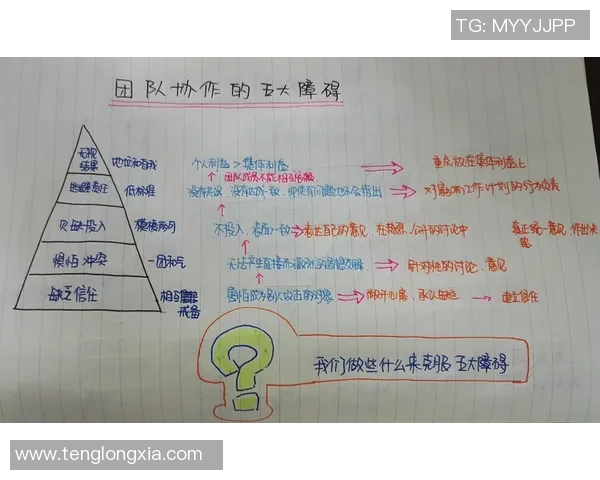 TG: MYYJJPP
团队协作的五大障碍
无视结果 地位和自我 个人利益>集体利益 重点放在集体利益上
团队成员不能相互
逃避责任 低标准 没有 没有达成一致,即使有问题也不会指出 对影响工作计划的行为负责
欠缺投入 模棱两可 不投入,表面一致 表达自己的意见,在 公开的讨论中 真正统一意见,作出决策
惧怕冲突 一团和气 无法产生直接而激烈的思想交锋 针对性的讨论,意见
缺乏信任 相互 戒备 害怕成为别人攻击的对象 敞开心扉,承认 建立信任
我们做些什么来克服五大障碍
www.tenglongxia.com